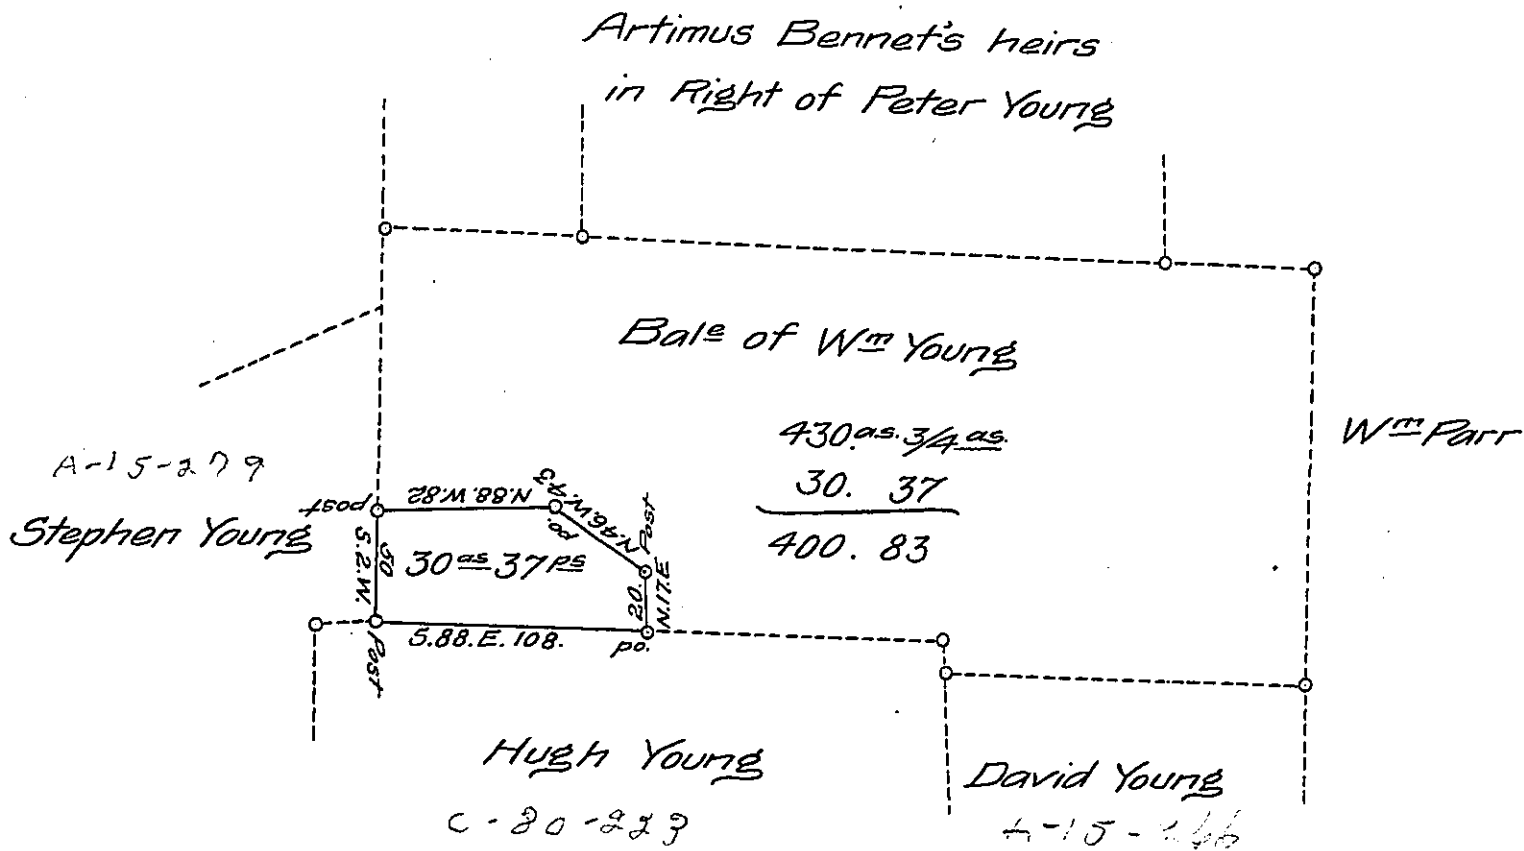 Artimus Bennet's heirs
in Right of Peter Young
Bale of Wm Young
430.as. 3/4 as.
30. 37
400. 83
Wm Parr
A-15-279
Stephen Young
post
N.88.W.82
po.
N.46.W.43
Post
30 as 37 ps
50
S.2.W.
20.
N.17.E
S.88.E.108.
po.
Post
Hugh Young
C-80-223
David Young